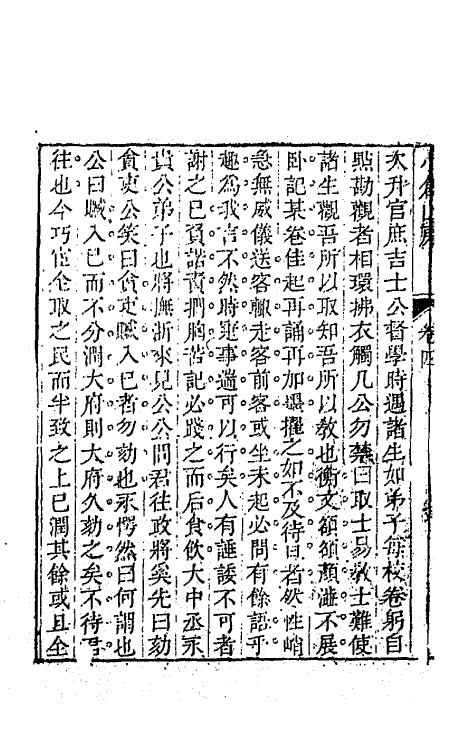 小倉山房
卷四
次升官庶吉士公督學時遇諸生如弟子每校卷躬自
點勘觀者相環拂衣觸几公勿禁曰取士易教士難使
諸生觀吾所以取知吾所以教也衡文額顏澁不展
臥記某卷佳起再誦再加墨擢之如不及待旦者然性峭
急無威儀送客輒走客前客或坐未起必問有餘語乎
趣爲我言不然時更事遒可以行矣人有諈諉不可者
謝之已負諾責捫胸苦記必踐之而后食飲大中丞永
貴公弟子也將撫浙來見公公問君往政將奚先曰劾
貪吏公笑曰貪吏贓入已者勿劾也永愕然曰何謂也
公曰贓入已而不分潤大府則大府久劾之矣不待君
往也今巧宦全取之民而半致之上已潤其餘或且全